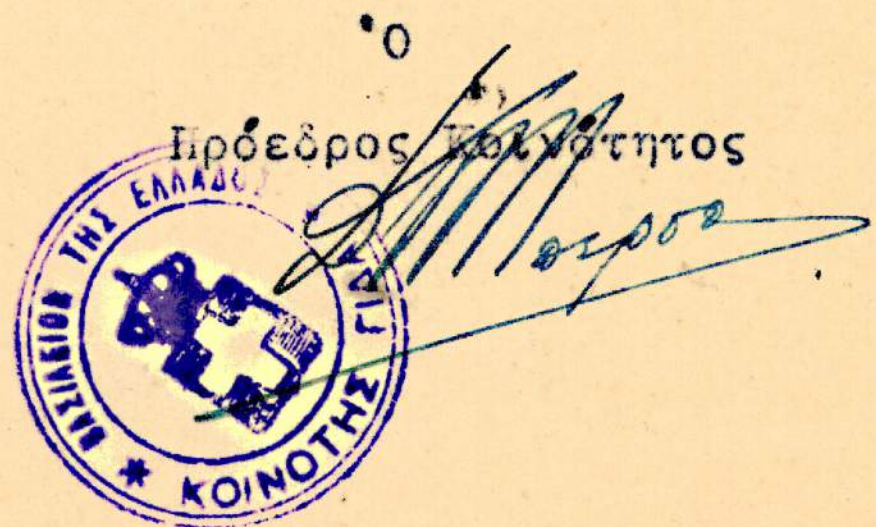 Ὁ
Πρόεδρος Κοινότητος
ΒΑΣΙΛΕΙΟΝ ΤΗΣ ΕΛΛΑΔΟΣ
ΚΟΙΝΟΤΗΣ